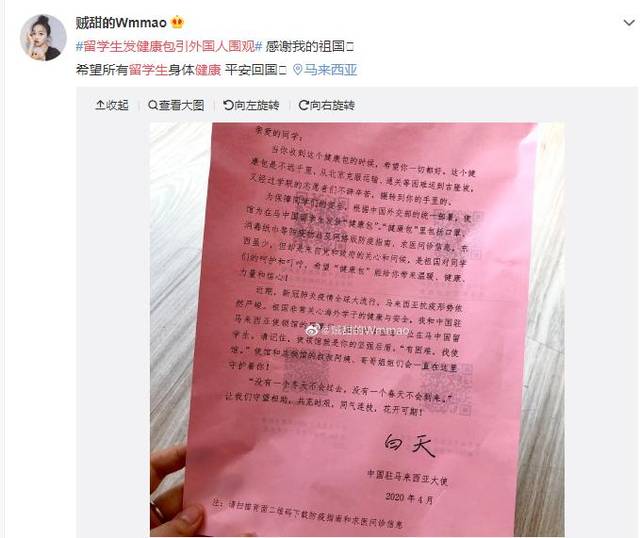 贼甜的Wmmao
#留学生发健康包引外国人围观# 感谢我的祖国
希望所有留学生身体健康 平安回国 马来西亚
收起 查看大图 向左旋转 向右旋转
亲爱的同学:
当你收到这个健康包的时候,希望你一切都好。这个健
康包是不远千里、从北京克服运输、通关等困难送到吉隆坡,
又经过学联的志愿者们不辞辛苦,辗转到你的手里的。
为保障同学们的安全,根据中国外交部的统一部署,使
馆为在马中国留学生发放“健康包”。“健康包”里包括口罩、
消毒纸巾等防疫物品及网络版防疫指南、求医问诊信息。东
西虽少,但却是来自党和政府的关心和问候,是祖国对同学
们的呵护和叮咛。希望“健康包”能给你带来温暖、健康、
力量和信心!
近期,新冠肺炎疫情全球大流行,马来西亚抗疫形势依
然严峻。祖国非常关心海外学子的健康与安全。我和中国驻
马来西亚使领馆的
在马中国留
学生。请记住,使领馆就是你的坚强后盾。“有困难,找使
馆。”使馆和总领馆的叔叔阿姨、哥哥姐姐们会一直在这里
守护着你!
“没有一个冬天不会过去,没有一个春天不会到来。”
让我们守望相助,共克时艰,同气连枝,花开可期!
@贼甜的Wmmao
白天
中国驻马来西亚大使
2020年4月
注:请扫描背面二维码下载防疫指南和求医问诊信息